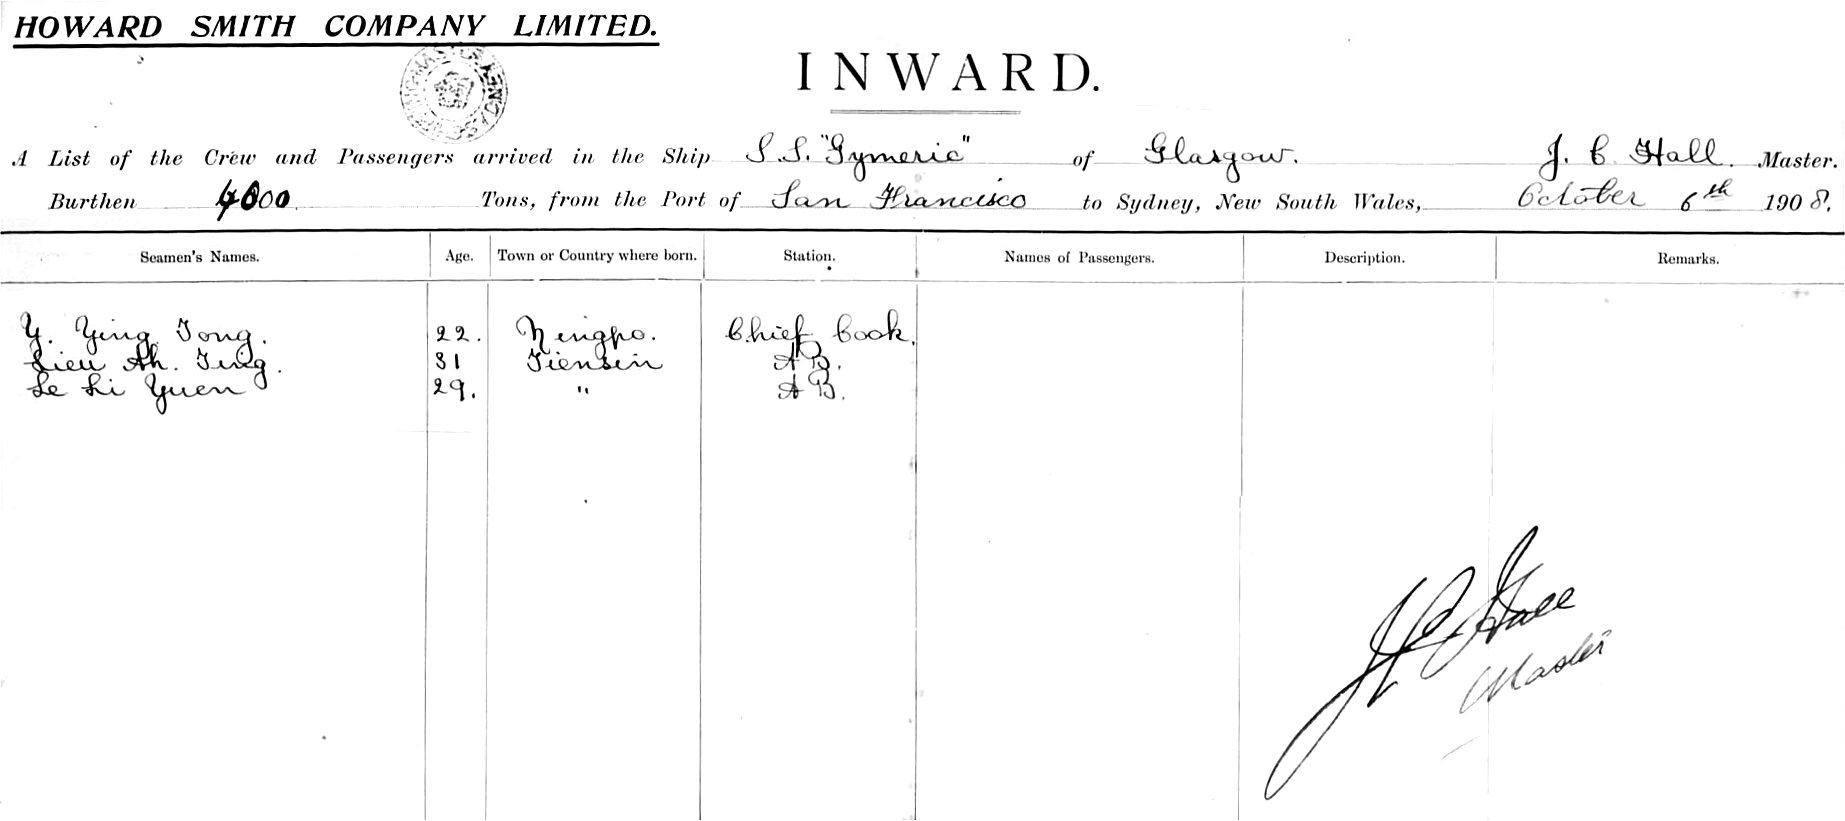 HOWARD SMITH COMPANY LIMITED.
INWARD.
A List of the Crew and Passengers arrived in the Ship S.S. "Gymeric" of Glasgow. J. C Hall. Master.
Burthen 4000 Tons, from the Port of San Francisco to Sydney, New South Wales, October 6th 1908.
Seamen's Names. Age. Town or Country where born. Station. Names of Passengers. Description. Remarks.
Y. Ying Tong. 22. Ningpo. Chief Cook.
Lieu Ah. Ting. 31 Tiensin A B.
Le Li Yuen 29. " A B.
J C Hall
Master